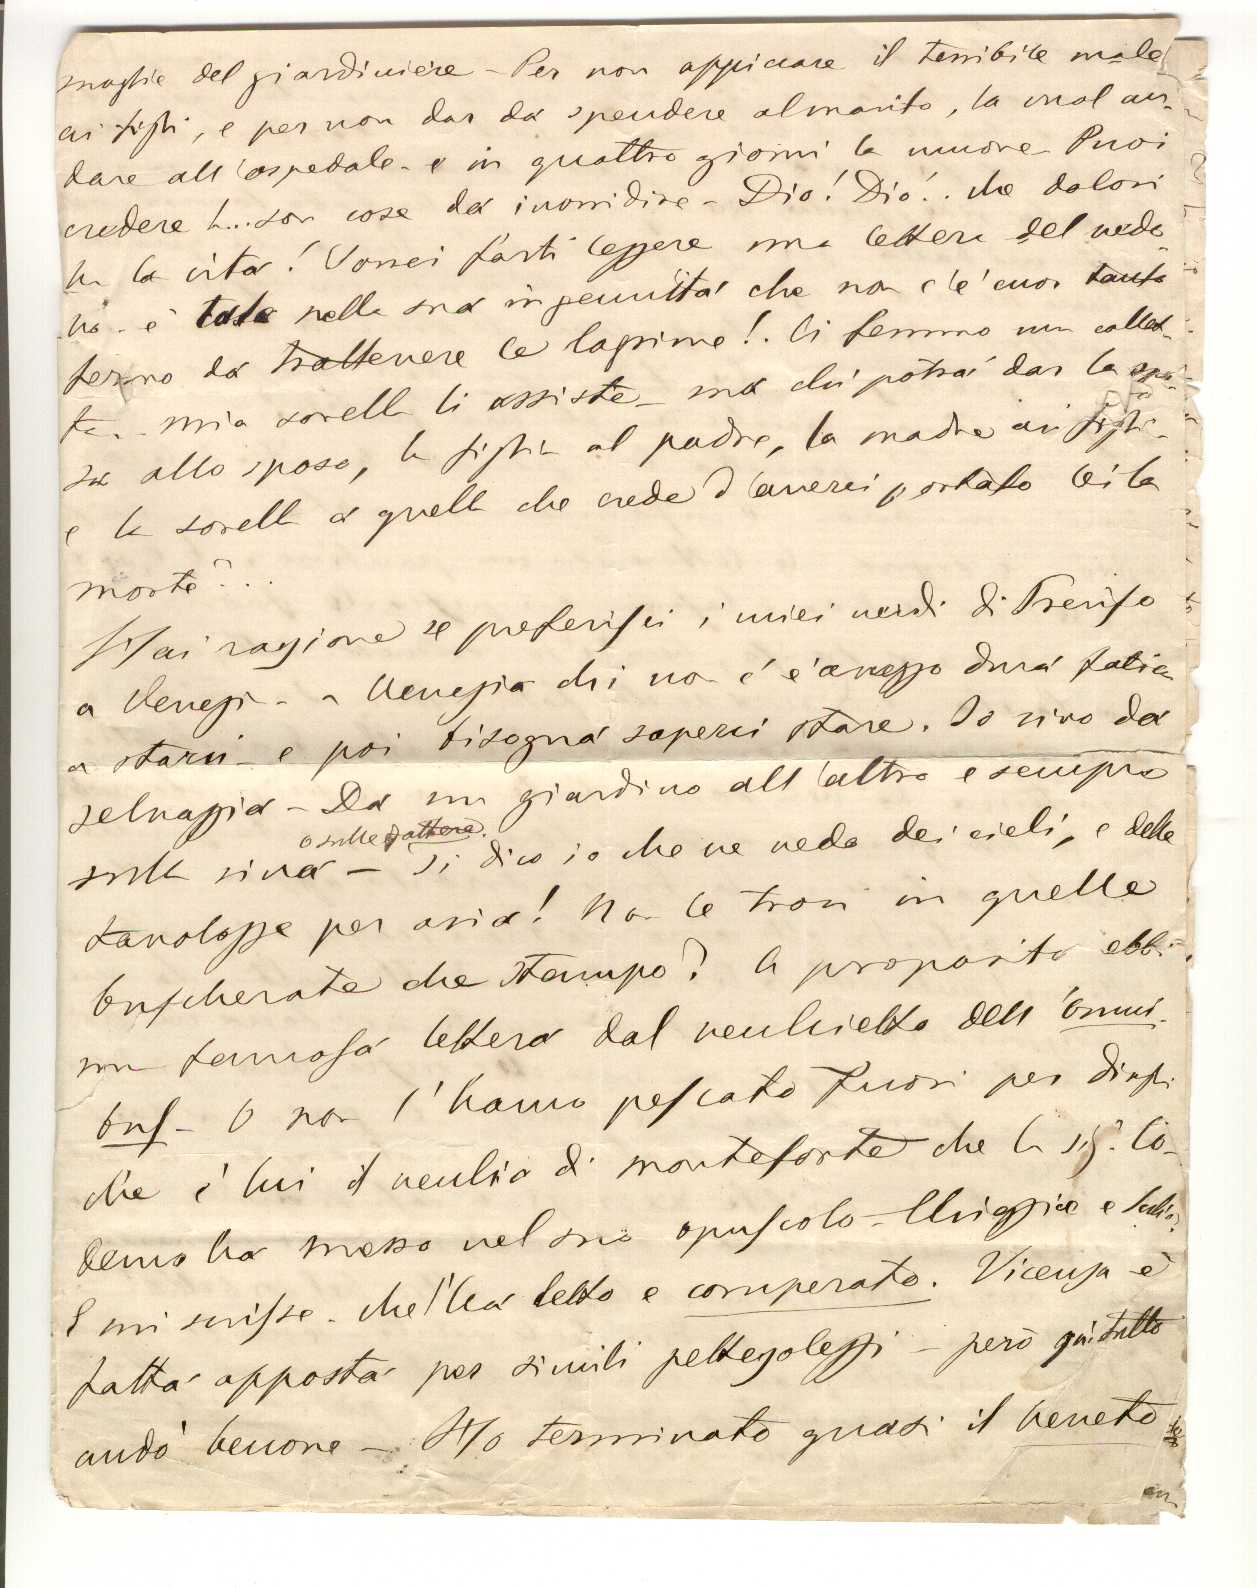 moglie del giardiniere - Per non appiccare il terribile male
ai figli, e per non dar da spendere al marito, la vuol an-
dare all'ospedale - e in quattro giorni la muore - Puoi
credere tu... son cose da inorridire - Dio! Dio!.. che dolori
ha la vita! Vorrei farti leggere una lettera del vedo-
vo - è tale nella sua ingenuità che non c'è cuor tanto
fermo da trattenere le lagrime!. Li femmo una collet-
ta - mia sorella li assiste - ma chi potrà dar la spo-
sa allo sposo, la figlia al padre, la madre ai figli -
e la sorella a quella che crede d'averci portato lei la
morte?..
Hai ragione se preferisci i miei verdi di Treviso
a Venezia - a Venezia chi non c'è avvezzo dura fatica
a starvi - e poi bisogna saperci stare. Io vivo da
selvaggia - Da un giardino all'altro e sempre
o sulle zattere.
sulla riva - Ti dico io che ne vedo dei cieli, e delle
tavolozze per aria! Non le trovi in quelle
buscherate che stampo? A proposito ebbi
una famosa lettera dal vecchietto dell'omni-
bus - O non l'hanno pescato fuori per dirgli
ch'è lui il vecchio di monteforte che la sig.ª Co-
demo ha messo nel suo opuscolo -
E mi scrisse - che l'ha letto e comperato. Vicenza è
fatta apposta per simili pettegolezzi - però qui tutto
andò benone - Ho terminato quasi il veneto